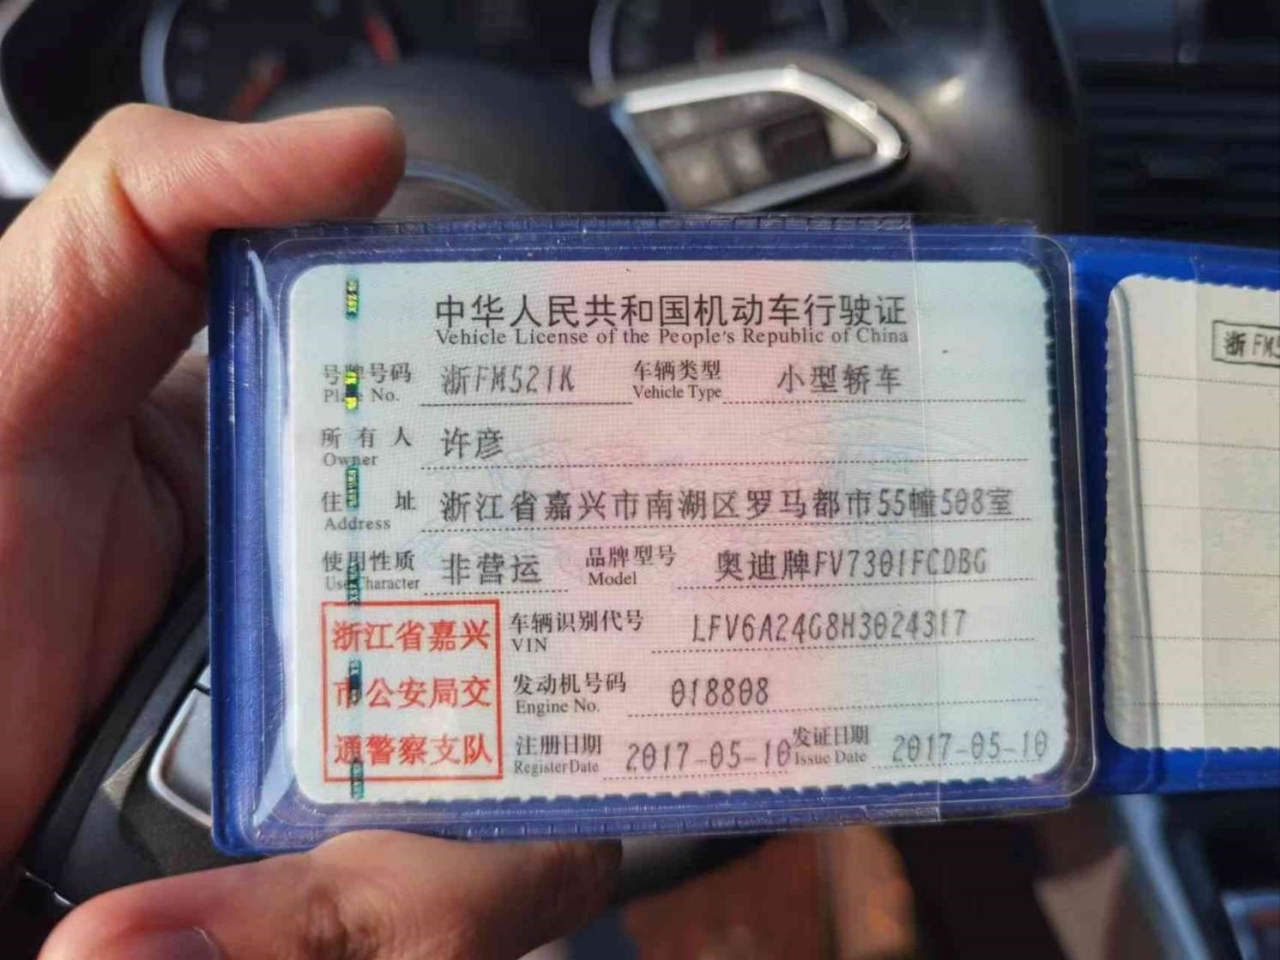 中华人民共和国机动车行驶证
Vehicle License of the People's Republic of China
号牌号码 浙FM521K 车辆类型 小型轿车
Plate No. Vehicle Type
所有人 许彦
Owner
住址 浙江省嘉兴市南湖区罗马都市55幢508室
Address
使用性质 非营运 品牌型号 奥迪牌FV7301FCDBG
Use Character Model
浙江省嘉兴
市公安局交
通警察支队
车辆识别代号 LFV6A24G8H3024317
VIN
发动机号码 018808
Engine No.
注册日期 2017-05-10 发证日期 2017-05-10
Register Date Issue Date
浙FM5